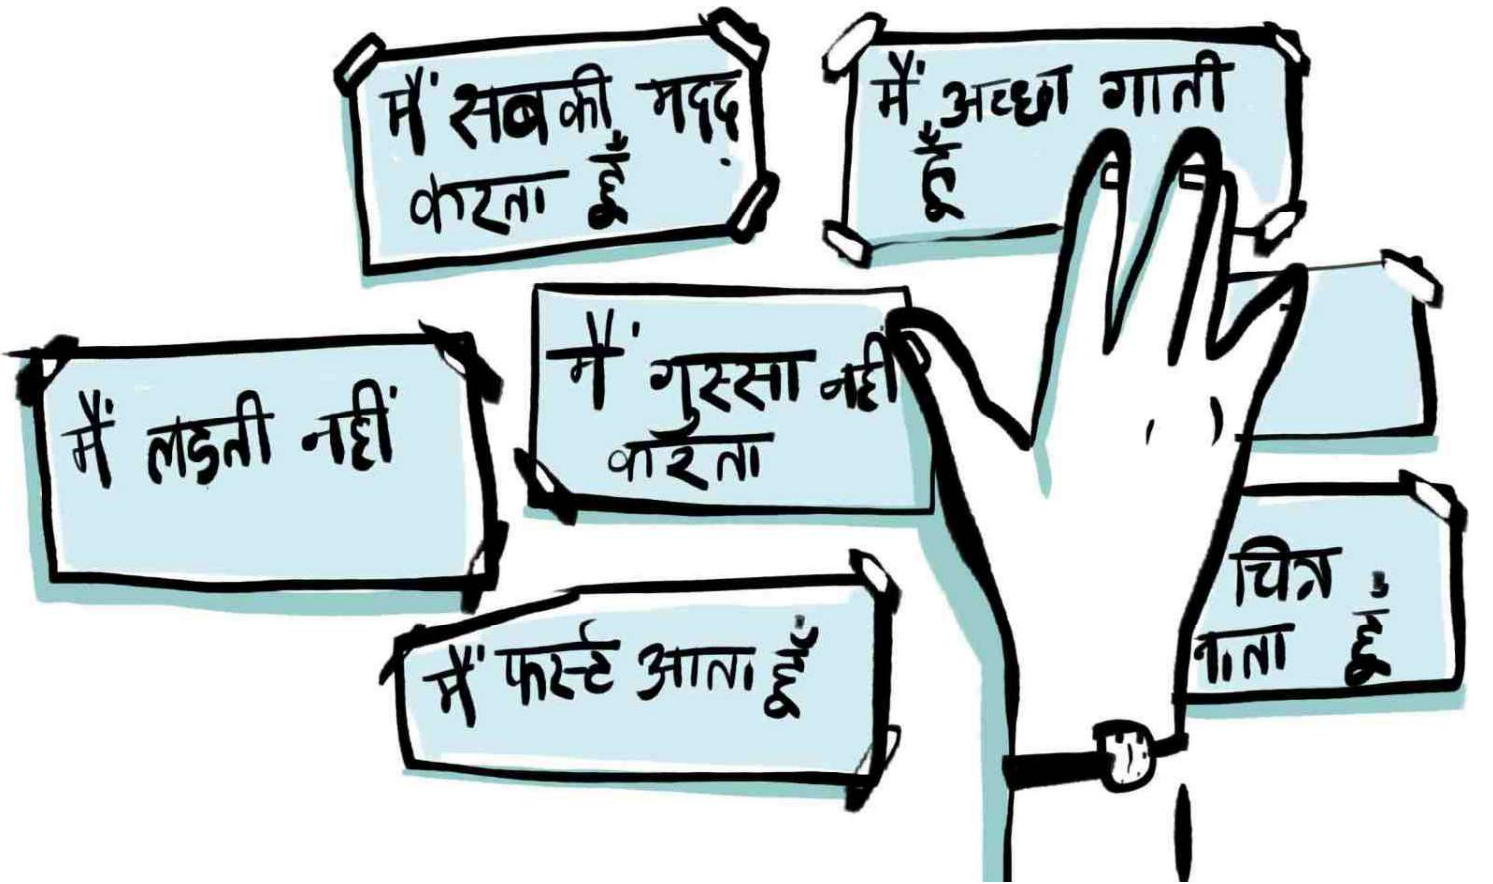 मैं सबकी मदद
करता हूँ
मैं अच्छा गाती
हूँ
मैं लडती नहीं
मैं गुस्सा नहीं
करता
मैं फर्स्ट आता हूँ
चित्र
हूँ